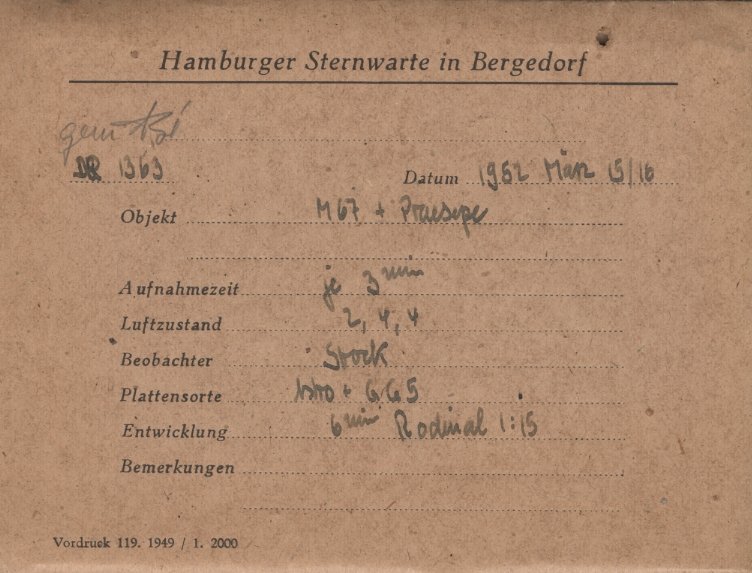 Hamburger Sternwarte in Bergedorf
1363
Datum 1952 März 15/16
Objekt M67 + Praesepe
Aufnahmezeit je 3 min
Luftzustand 2, 4, 4
Beobachter Stock
Plattensorte Astro + GG5
Entwicklung 6 min Rodinal 1:15
Bemerkungen
Vordruck 119. 1949 / 1. 2000